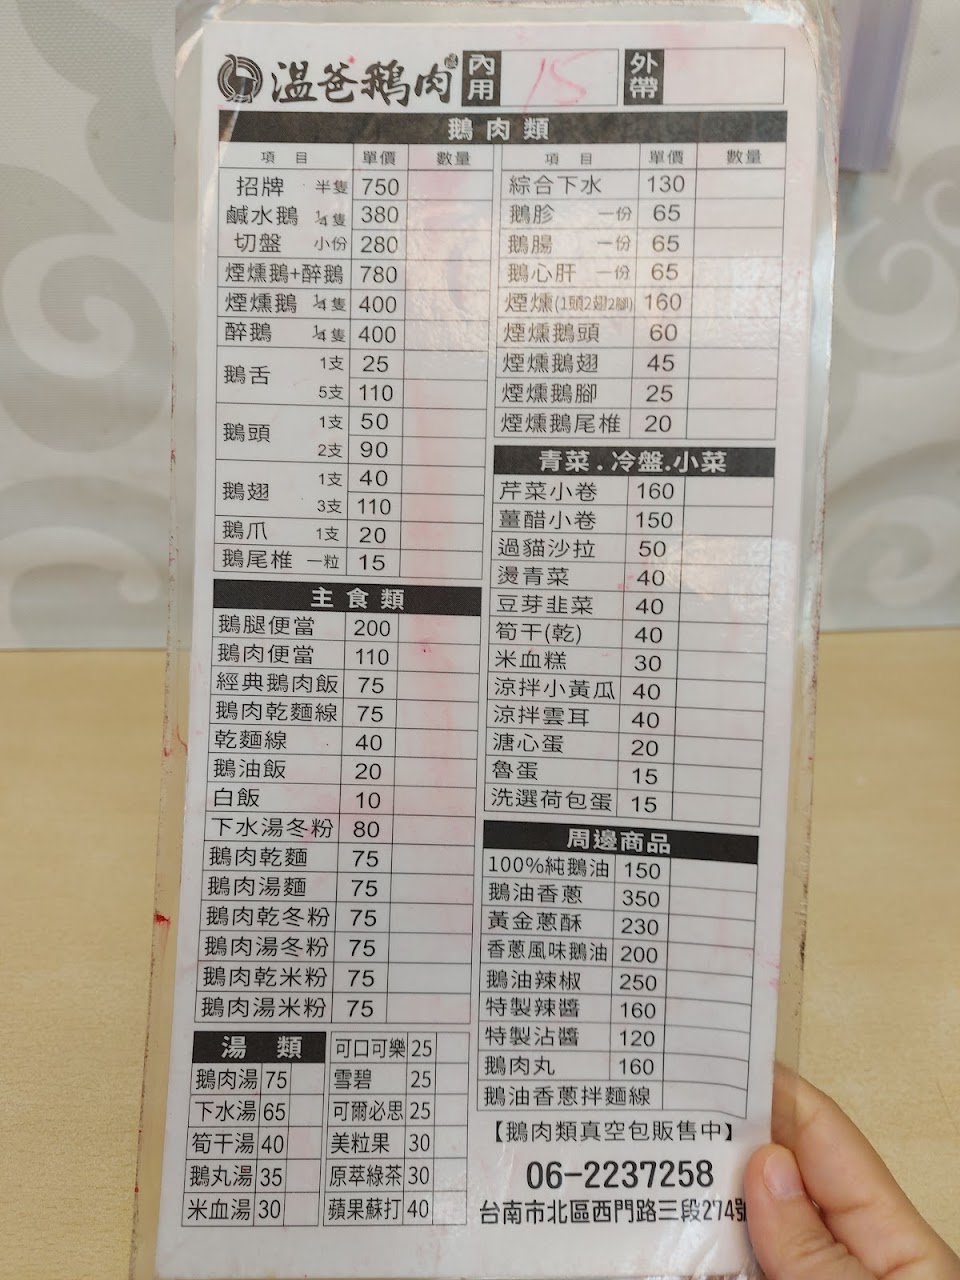 溫爸鵝肉 內用 15 外帶
鵝肉類
項目 單價 數量
招牌 半隻 750
鹹水鵝 ¼隻 380
切盤 小份 280
煙燻鵝+醉鵝 780
煙燻鵝 ¼隻 400
醉鵝 ¼隻 400
鵝舌 1支 25
5支 110
鵝頭 1支 50
2支 90
鵝翅 1支 40
3支 110
鵝爪 1支 20
鵝尾椎 一粒 15
項目 單價 數量
綜合下水 130
鵝胗 一份 65
鵝腸 一份 65
鵝心肝 一份 65
煙燻(1頭2翅2腳) 160
煙燻鵝頭 60
煙燻鵝翅 45
煙燻鵝腳 25
煙燻鵝尾椎 20
主食類
鵝腿便當 200
鵝肉便當 110
經典鵝肉飯 75
鵝肉乾麵線 75
乾麵線 40
鵝油飯 20
白飯 10
下水湯冬粉 80
鵝肉乾麵 75
鵝肉湯麵 75
鵝肉乾冬粉 75
鵝肉湯冬粉 75
鵝肉乾米粉 75
鵝肉湯米粉 75
青菜.冷盤.小菜
芹菜小卷 160
薑醋小卷 150
過貓沙拉 50
燙青菜 40
豆芽韭菜 40
筍干(乾) 40
米血糕 30
涼拌小黃瓜 40
涼拌雲耳 40
溏心蛋 20
魯蛋 15
洗選荷包蛋 15
周邊商品
100%純鵝油 150
鵝油香蔥 350
黃金蔥酥 230
香蔥風味鵝油 200
鵝油辣椒 250
特製辣醬 160
特製沾醬 120
鵝肉丸 160
鵝油香蔥拌麵線
湯類
鵝肉湯 75
下水湯 65
筍干湯 40
鵝丸湯 35
米血湯 30
可口可樂 25
雪碧 25
可爾必思 25
美粒果 30
原萃綠茶 30
蘋果蘇打 40
【鵝肉類真空包販售中】
06-2237258
台南市北區西門路三段274號